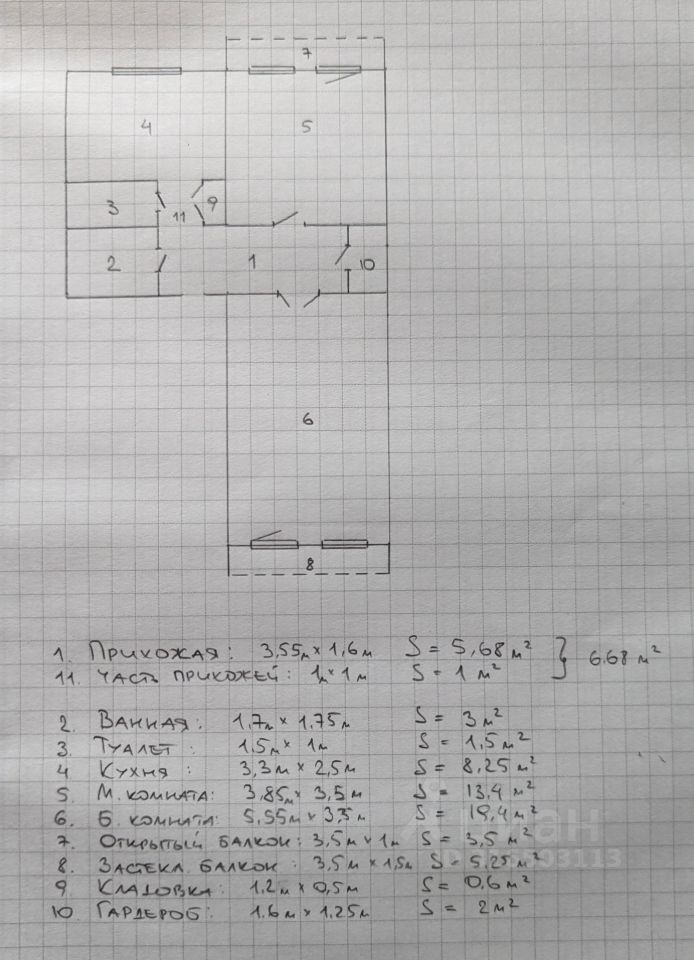 7
4
5
3
9
11
2
1
10
6
8
1. Прихожая: 3,55м × 1,6м S = 5,68 м² } 6.68 м²
11. часть прихожей: 1м × 1м S = 1 м²
2. Ванная: 1,7м × 1,75м S = 3 м²
3. Туалет: 1,5м × 1м S = 1,5 м²
4 Кухня: 3,3м × 2,5м S = 8,25 м²
5 М. комната: 3,85м × 3,5м S = 13,4 м²
6. Б. комната: 5,55м × 3,5м S = 19,4 м²
7. Открытый балкон: 3,5м × 1м S = 3,5 м²
8. Застекл. балкон: 3,5м × 1,5м S = 5,25 м²
9 Кладовка: 1,2м × 0,5м S = 0,6 м²
10 Гардероб: 1,6м × 1,25м S = 2 м²